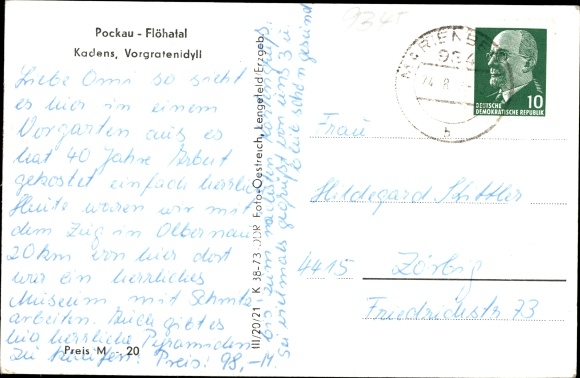 Pockau - Flöhatal
Kadens, Vorgratenidyll
Liebe Omi so sieht
es hier in einem
Vorgarten aus es
hat 40 Jahre Arbeit
gekostet einfach herrlich
Heute waren wir mit
dem Zug in Olbernau
20 km von hier dort
war ein herrliches
Museum mit Schnitz-
arbeiten. Auch gibt es
hier herrliche Pyramiden
zu kaufen. Preis: 98,-M.
Preis M -20
bis zum nächsten
Sei vielmals gegrüßt von uns 3 u.
bleib schön gesund
III/20/21 K 38-73 DDR Foto-Oestreich, Lengefeld/Erzgeb.
934
MARIENBE
934
24.8.
b
DEUTSCHE
DEMOKRATISCHE REPUBLIK
10
Frau
Hildegard
4415 Zörbig
Friedrichstr. 73